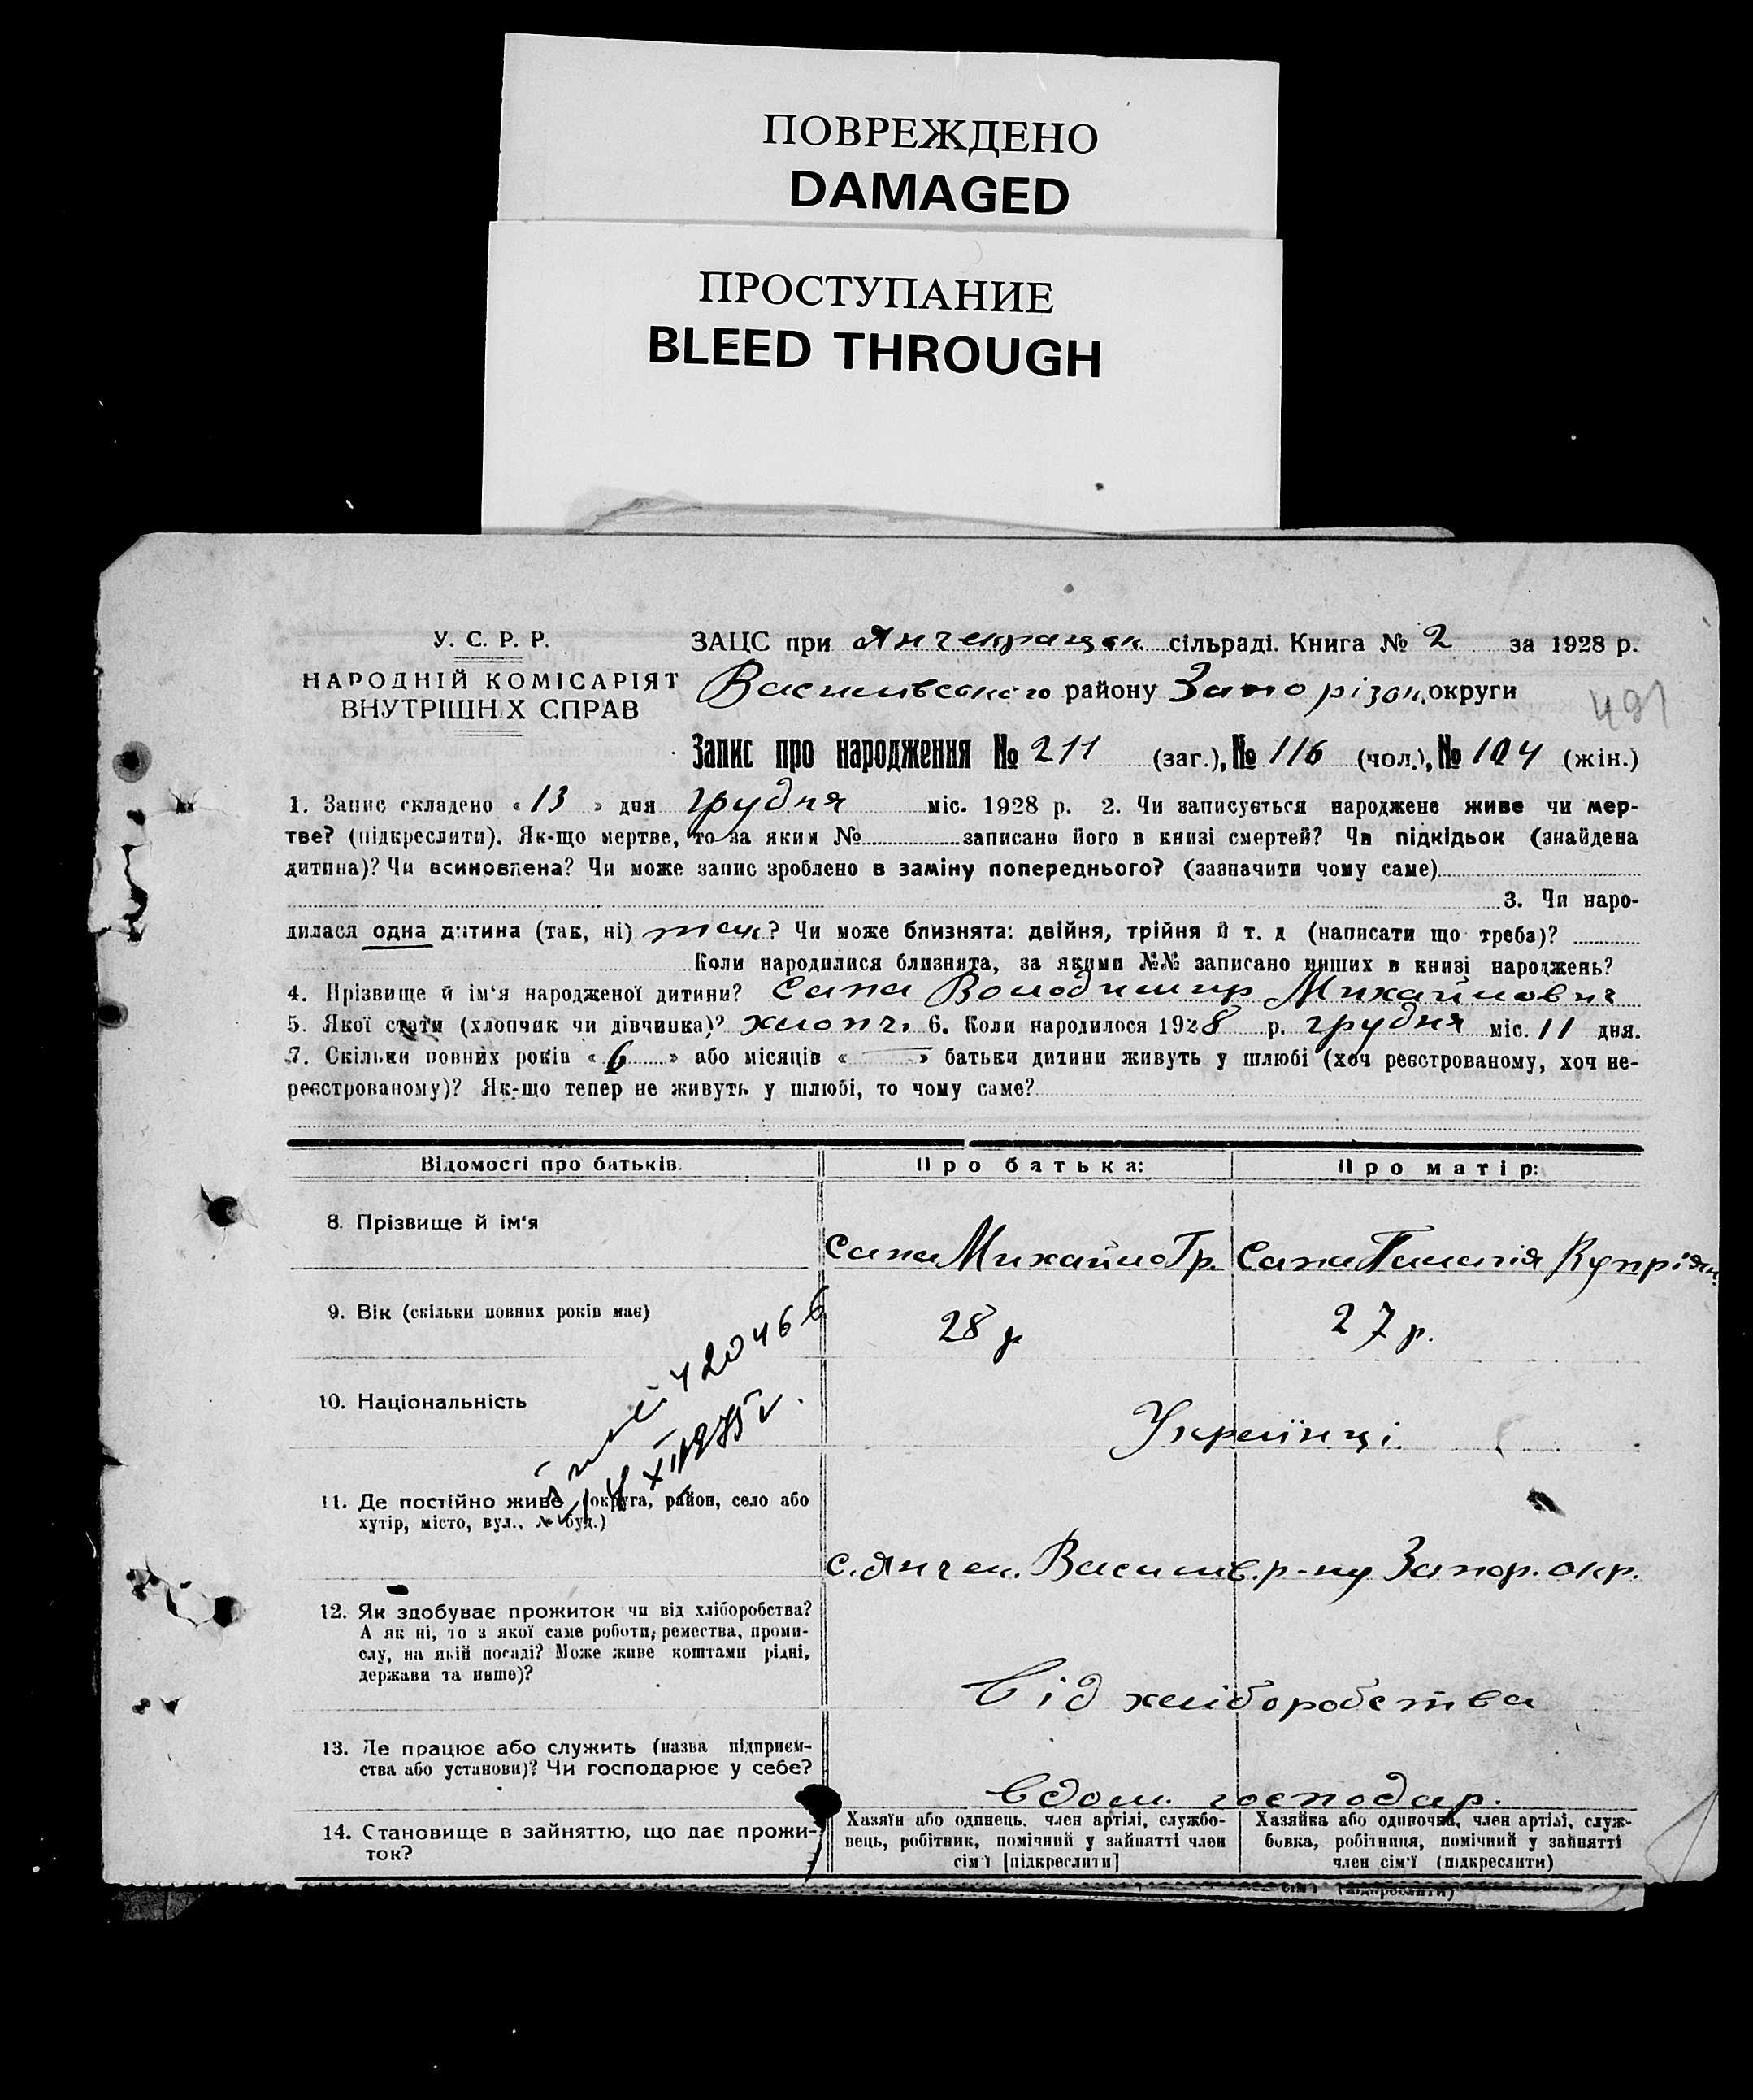 ПОВРЕЖДЕНО
DAMAGED
ПРОСТУПАНИЕ
BLEED THROUGH
У. С. Р. Р.
НАРОДНІЙ КОМІСАРІЯТ
ВНУТРІШНІХ СПРАВ
ЗАЦС при Янчекрацьк. сільраді. Книга № 2 за 1928 р.
Василівського району Запорізьк. округи
491
Запис про народження № 211 (заг.), № 116 (чол.), № 104 (жін.)
1. Запис складено « 13 » дня грудня міс. 1928 р. 2. Чи записується народжене живе чи мер-
тве? (підкреслити). Як-що мертве, то за яким № записано його в книзі смертей? Чи підкідьок (знайдена
дитина)? Чи всиновлена? Чи може запис зроблено в заміну попереднього? (зазначити чому саме)
3. Чи наро-
дилася одна дитина (так, ні) так? Чи може близнята: двійня, трійня й т. д (написати що треба)?
Коли народилися близнята, за якими №№ записано инших в книзі народжень?
4. Прізвище й ім'я народженої дитини? Сапа Володимир Михайлович
5. Якої стати (хлопчик чи дівчинка)? хлопч. 6. Коли народилося 1928 р. грудня міс. 11 дня.
7. Скільки повних років « 6 » або місяців « — » батьки дитини живуть у шлюбі (хоч реєстрованому, хоч не-
реєстрованому)? Як-що тепер не живуть у шлюбі, то чому саме?
Відомості про батьків. Про батька: Про матір:
8. Прізвище й ім'я
Сапа Михайло Гр. Сапа Палагія Купріян.
9. Вік (скільки повних років має)
28 р 27 р.
420466
10. Національність
Українці.
XII 1975 г.
11. Де постійно живе (округа, район, село або
хутір, місто, вул., № буд.)
с. Янчек. Василів. р-ну Запор. окр.
12. Як здобуває прожиток чи від хліборобства?
А як ні, то з якої саме роботи, ремества, проми-
слу, на якій посаді? Може живе коштами рідні,
держави та инше)?
Від хліборобства
13. Де працює або служить (назва підприєм-
ства або установи)? Чи господарює у себе?
Вдом. господар.
14. Становище в зайняттю, що дає прожи-
ток?
Хазяїн або одинець, член артілі, службо-
вець, робітник, помічний у зайнятті член
сім'ї [підкреслити]
Хазяйка або одиночка, член артілі, служ-
бовка, робітниця, помічний у зайнятті
член сім'ї (підкреслити)
сім'ї (підкреслити)